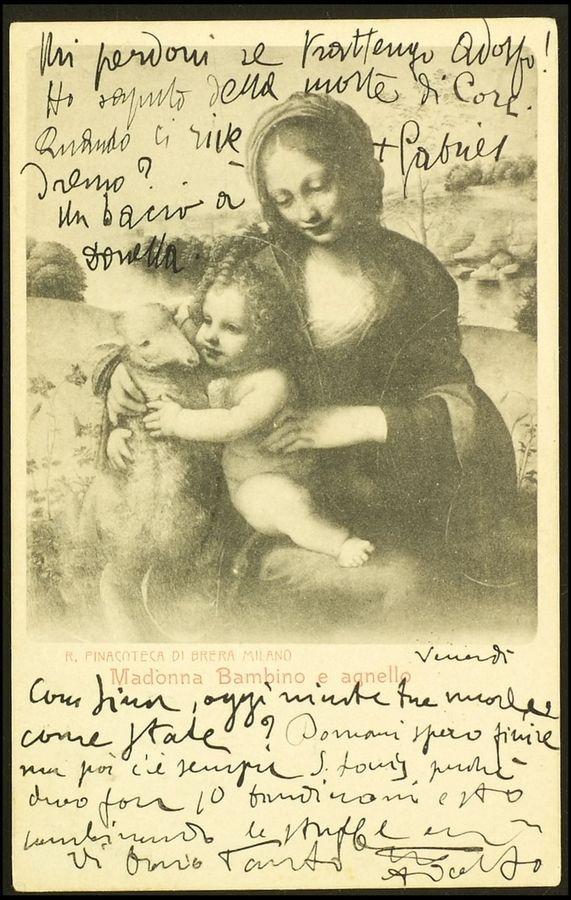 Mi perdoni se trattengo Adolfo!
Ho saputo della morte di Core.
Quando ci rive
+ Gabriel
dremo?
Un bacio a
Donella.
R. PINACOTECA DI BRERA MILANO
Madonna Bambino e agnello
Venerdì
oggi
come state? Domani spero finire
ma poi c'è sempre S. Louis, perché
devo fare 10 e sto
combinando le stoffe
Vi bacio tanto Adolfo